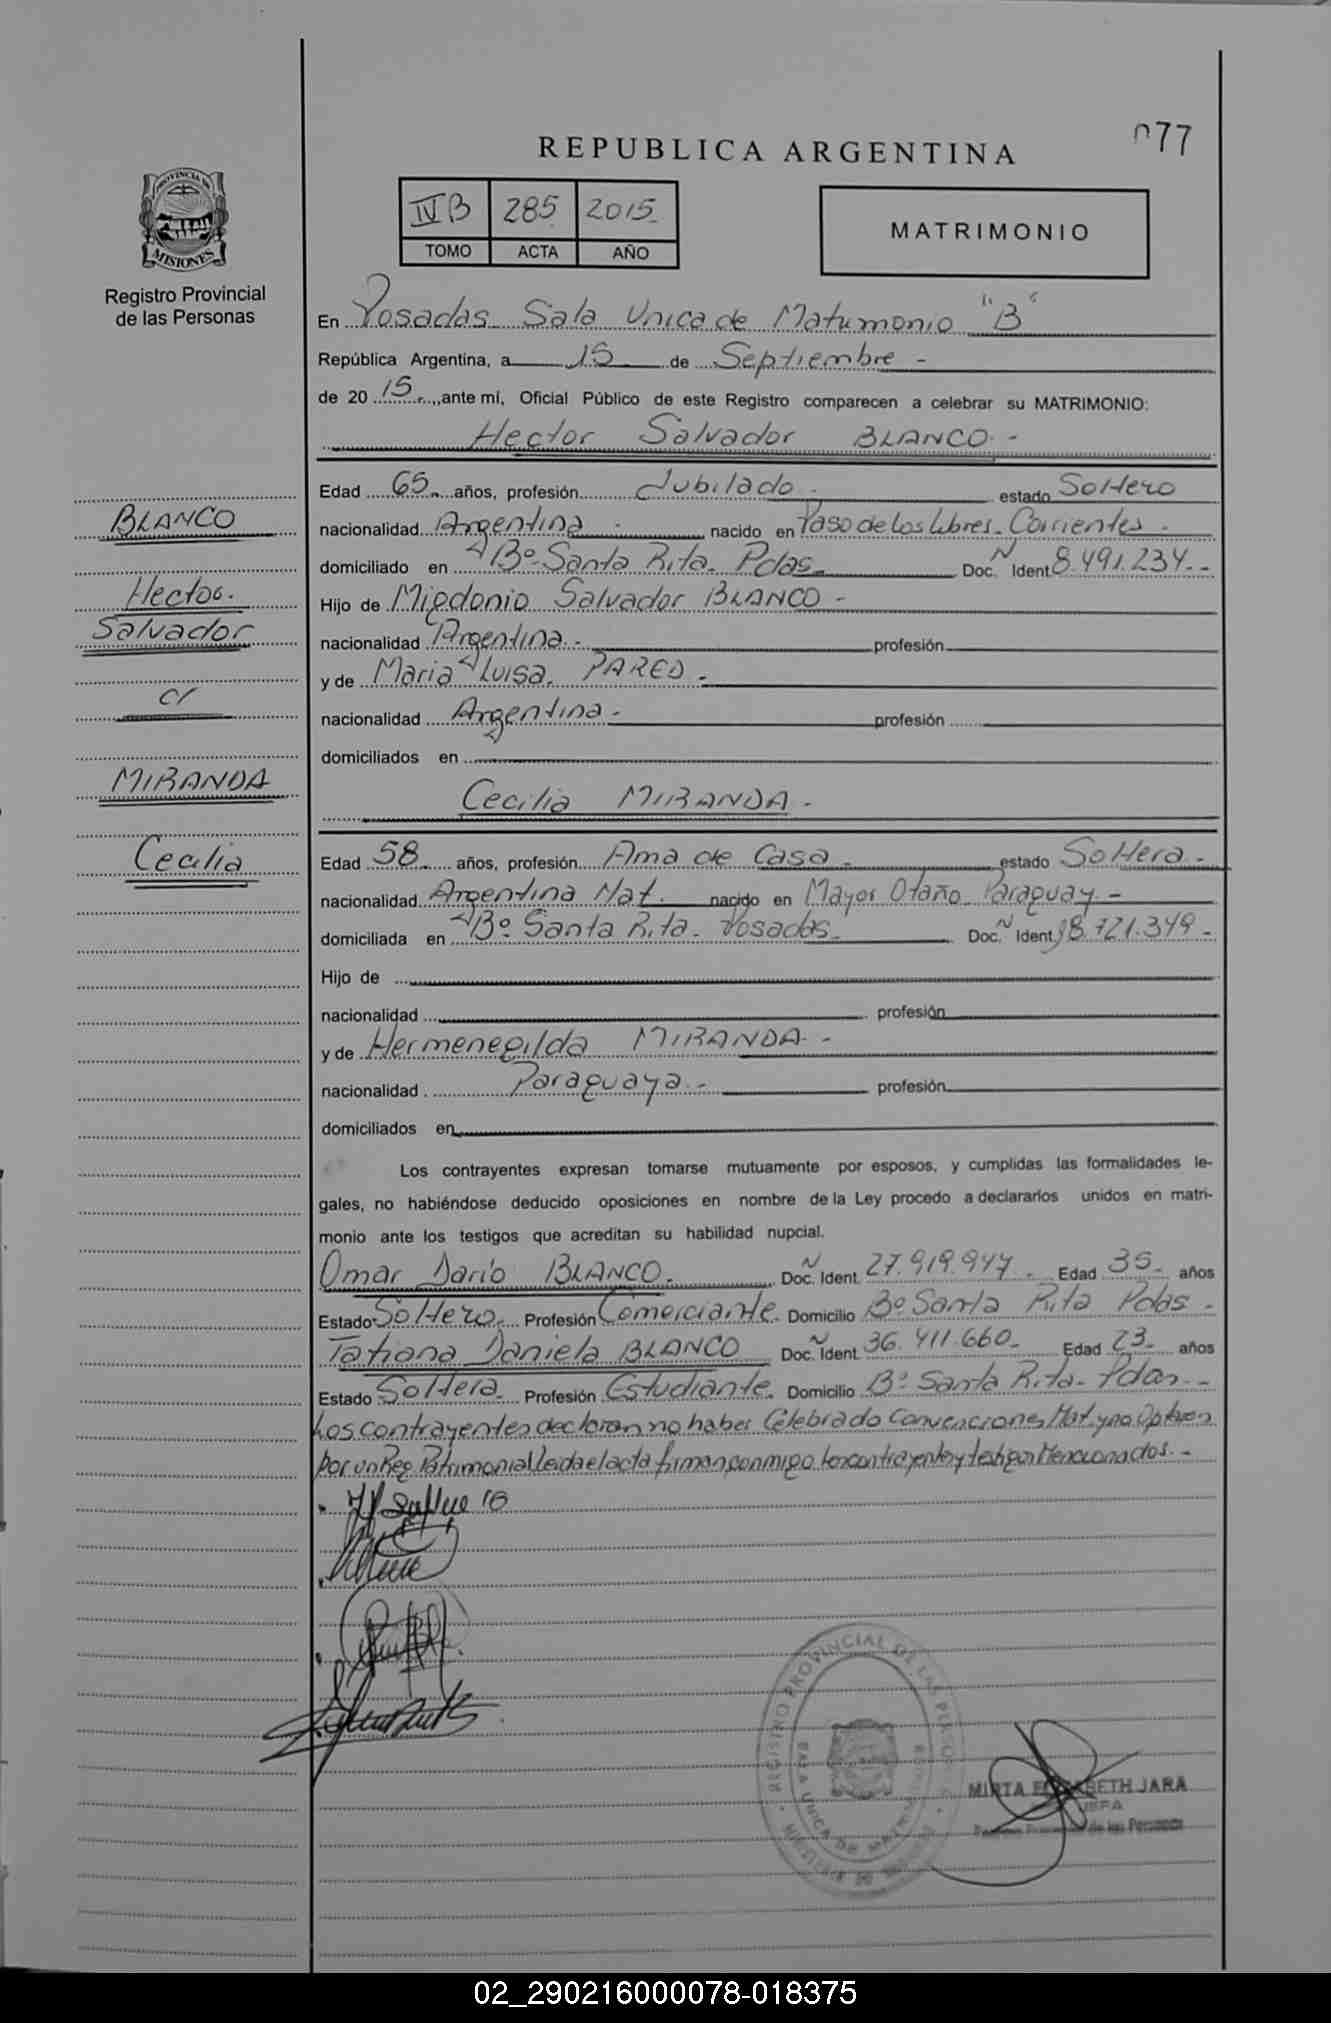 077
REPUBLICA ARGENTINA
IV B 285 2015
TOMO ACTA AÑO
MATRIMONIO
PROVINCIA DE
MISIONES
Registro Provincial
de las Personas
En Posadas Sala Unica de Matrimonio "B"
República Argentina, a 15 de Septiembre -
de 20 15 ante mí, Oficial Público de este Registro comparecen a celebrar su MATRIMONIO:
Hector Salvador BLANCO. -
Edad 65 años, profesión Jubilado - estado Soltero
nacionalidad Argentina - nacido en Paso de los Libres - Corrientes -
domiciliado en Bº Santa Rita - Pdas - Doc. Ident Nº 8.491.234 -
Hijo de Salvador BLANCO -
nacionalidad Argentina - profesión
y de Maria Luisa PARED -
nacionalidad Argentina - profesión
domiciliados en
Cecilia MIRANDA -
Edad 58 años, profesión Ama de Casa - estado Soltera -
nacionalidad Argentina Nat. nacido en Mayor Otaño - Paraguay -
domiciliada en Bº Santa Rita - Posadas - Doc. Ident Nº 18.721.349 -
Hijo de
nacionalidad profesión
y de Hermenegilda MIRANDA -
nacionalidad Paraguaya - profesión
domiciliados en
Los contrayentes expresan tomarse mutuamente por esposos, y cumplidas las formalidades le-
gales, no habiéndose deducido oposiciones en nombre de la Ley procedo a declararlos unidos en matri-
monio ante los testigos que acreditan su habilidad nupcial.
Omar Dario BLANCO. Doc. Ident. Nº 27.919.947 - Edad 35 - años
Estado Soltero Profesión Comerciante Domicilio Bº Santa Rita Pdas -
Tatiana Daniela BLANCO Doc. Ident. Nº 36.411.660 - Edad 23 - años
Estado Soltera Profesión Estudiante Domicilio Bº Santa Rita - Pdas -
Los contrayentes declaran no haber Celebrado Convenciones Mat. y no Optaron
por un Reg. Patrimonial Leida el acta firman conmigo los contrayentes y testigos Mencionados. -
BLANCO
Hector
Salvador
c/
MIRANDA
Cecilia
REGISTRO PROVINCIAL DE LAS
MIRTA ELISABETH JARA
de las Personas
02_290216000078-018375